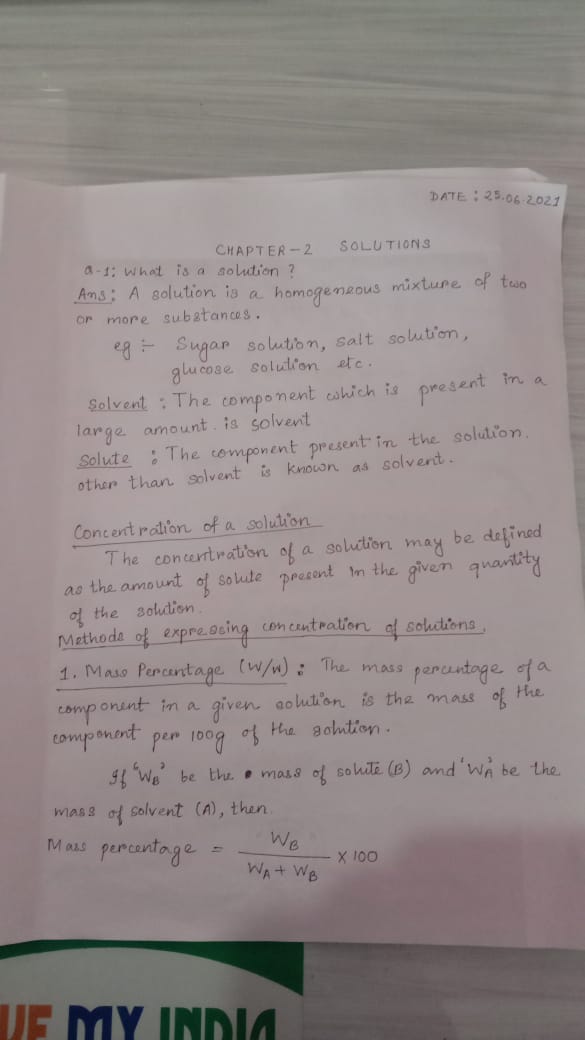 DATE : 25.06.2021
CHAPTER-2 SOLUTIONS
Q-1: What is a solution ?
Ans: A solution is a homogeneous mixture of two
or more substances.
eg :- Sugar solution, salt solution,
glucose solution etc.
Solvent : The component which is present in a
large amount. is solvent
Solute : The component present in the solution.
other than solvent is known as solvent.
Concentration of a solution
The concentration of a solution may be defined
as the amount of solute present in the given quantity
of the solution.
Methods of expressing concentration of solutions.
1. Mass Percentage (W/W) : The mass percentage of a
component in a given solution is the mass of the
component per 100g of the solution.
If 'WB' be the mass of solute (B) and 'WA' be the
mass of solvent (A), then.
Mass percentage = WB / WA + WB X 100
VE MY INDIA